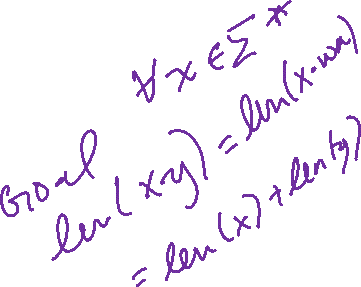 ∀x∈Σ*
Goal
len(x·y) = len(x·wa)
= len(x) + len(y)